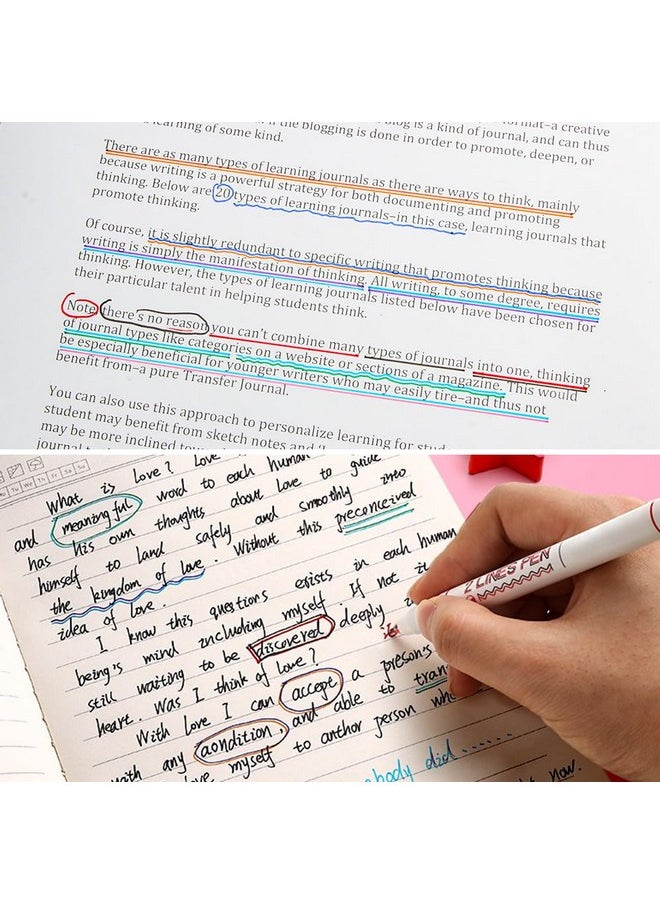 of the blogging is done in order to promote, deepen, or
learning of some kind.
There are as many types of learning journals as there are ways to think, mainly
because writing is a powerful strategy for both documenting and promoting
thinking. Below are 20 types of learning journals–in this case, learning journals that
promote thinking.
Of course, it is slightly redundant to specific writing that promotes thinking because
writing is simply the manifestation of thinking. All writing, to some degree, requires
thinking. However, the types of learning journals listed below have been chosen for
their particular talent in helping students think.
Note there's no reason you can't combine many types of journals into one, thinking
of journal types like categories on a website or sections of a magazine. This would
be especially beneficial for younger writers who may easily tire–and thus not
benefit from–a pure Transfer Journal.
You can also use this approach to personalize learning for
student may benefit from sketch notes and
may be more inclined
Tu We Th Fr Sa Su
What is Love? Love
and meaningful word to each human
has his own thoughts about love to guide
himself to land safely and smoothly into
the kingdom of love. Without this preconceived
idea of love.
I know this questions exists in each human
being's mind including myself If not it
still waiting to be discovered deeply
heart. Was I think of love?
With Love I can accept a preson's
with any aondition, and able to tran
love myself to anthor person who
body did ......
now.
2 LINES PEN